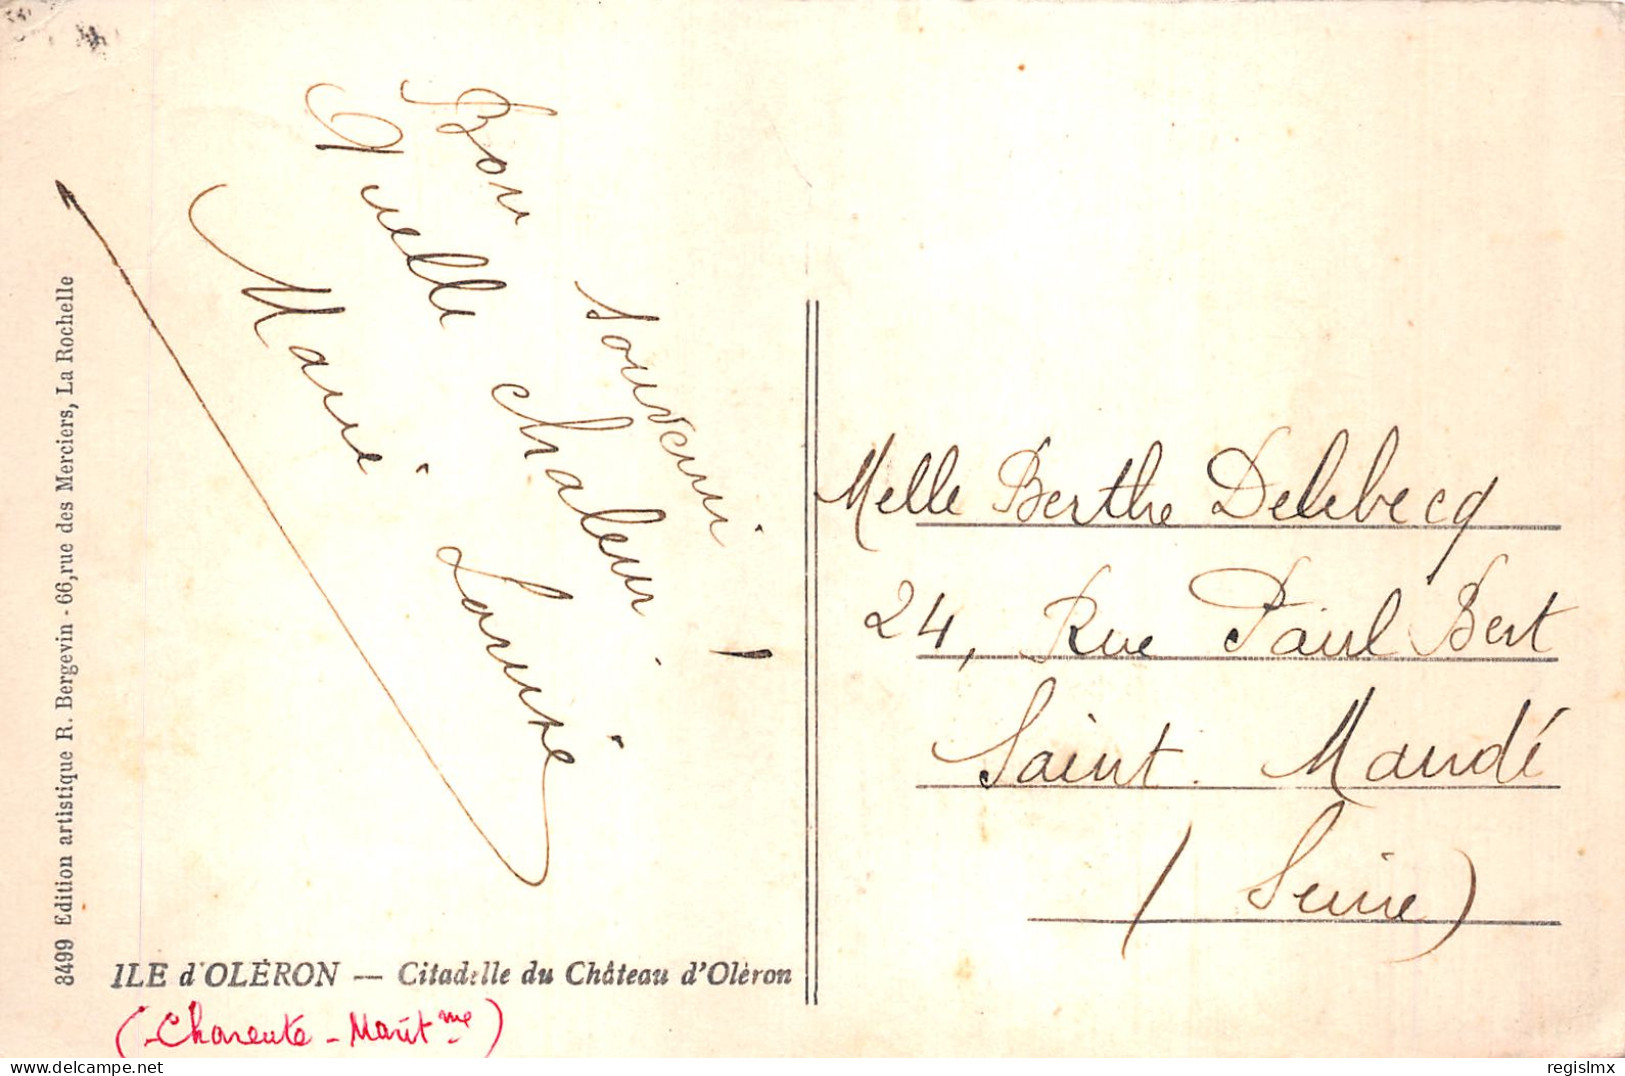 Bon souvenir
Quelle chaleur !
Marie Louise
8499 Edition artistique R. Bergevin - 66, rue des Merciers, La Rochelle
ILE d'OLÉRON — Citadelle du Château d'Oléron
(Charente-Marit me)
Melle Berthe Delebecq
24, Rue Paul Bert
Saint. Mandé
(Seine)
regislmx